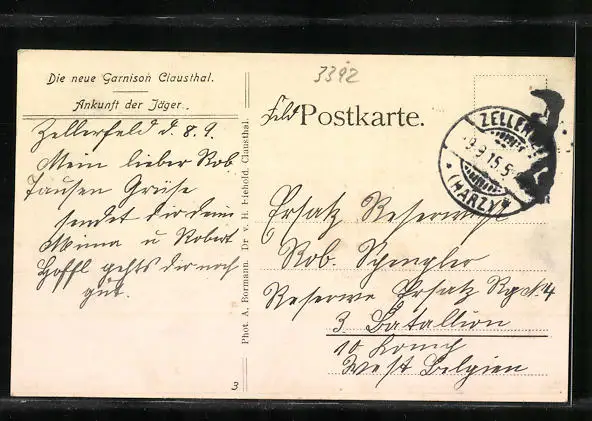 Die neue Garnison Clausthal.
Ankunft der Jäger.
Zellerfeld d. 8.9.
Mein lieber Rob
Tausen Grüße
sendet dir dein
Minna u Robert
Hoffl gehts dir noch
gut.
Phot. A. Bormann. Dr. v. H. Fiehold, Clausthal.
3
3392
Feld Postkarte.
ZELLERF
9.9.15.5
*(HARZ)*
Ersatz Reservist
Rob. Spengler
Reserve Ersatz Rgt. 4
3. Batallion
10 Komp
West Belgien